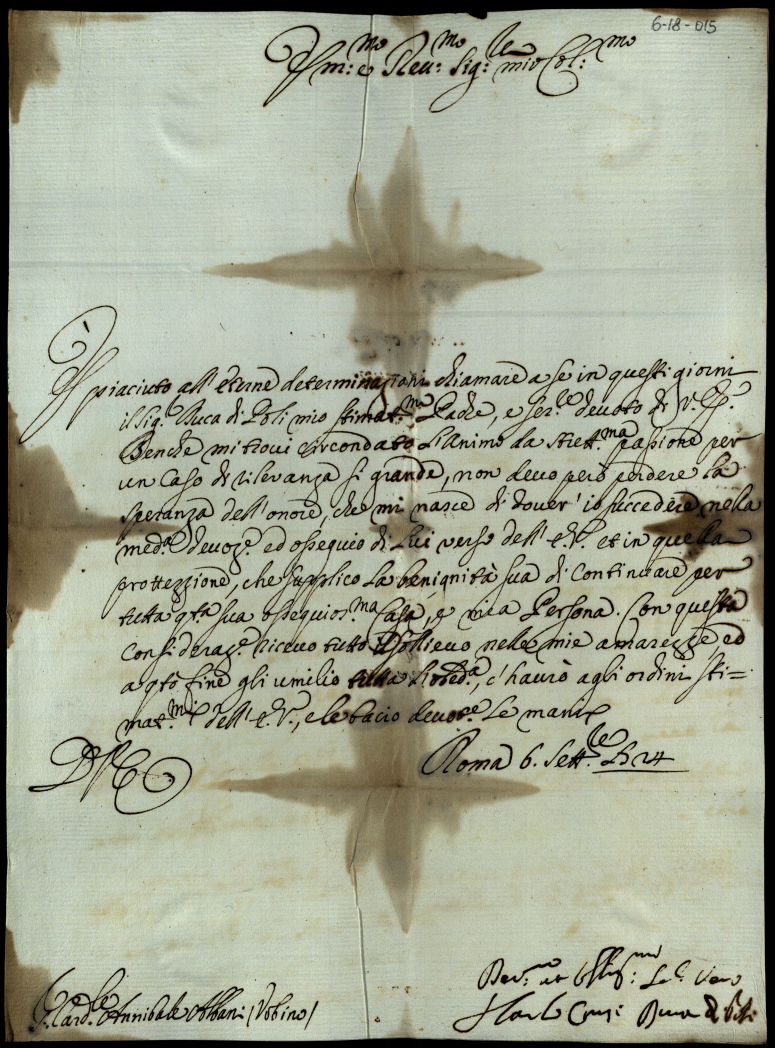 6-18-015
Em:mo e Reu:mo Sig:re mio Col:mo
È piaciuto all'eterne determinazioni chiamare a se in questi giorni
il Sig.r Duca di Poli mio stimat.mo Padre, e ser.re deuoto di V. E.
Benche mi troui circondato l'Animo da strett.ma passione per
un Caso di rileuanza si grande, non deuo però perdere la
speranza dell'onore, che mi nasce di douer' io succedere nella
med.a deuoz.e ed ossequio di Lui verso dell' E.V. et in quella
prottezzione, che supplico la benignità sua di Continuare per
tutta q.ta sua ossequios.ma Casa, e mia Persona. Con questa
Consideraz.e riceuo tutto il Sollieuo nelle mie amarezze ed
a q.to fine gli umilio tutta l'obbed.a, c'haurò agli ordini sti=
mat.mi dell' E.V., e le bacio deuot.e le mani
Roma 6. Sett.re 1724
DVE
S. Card.le Annibale Albani (Urbino)
Deu:mo et Obblig:mo Ser: Vero
Carlo Conti Duca di Poli